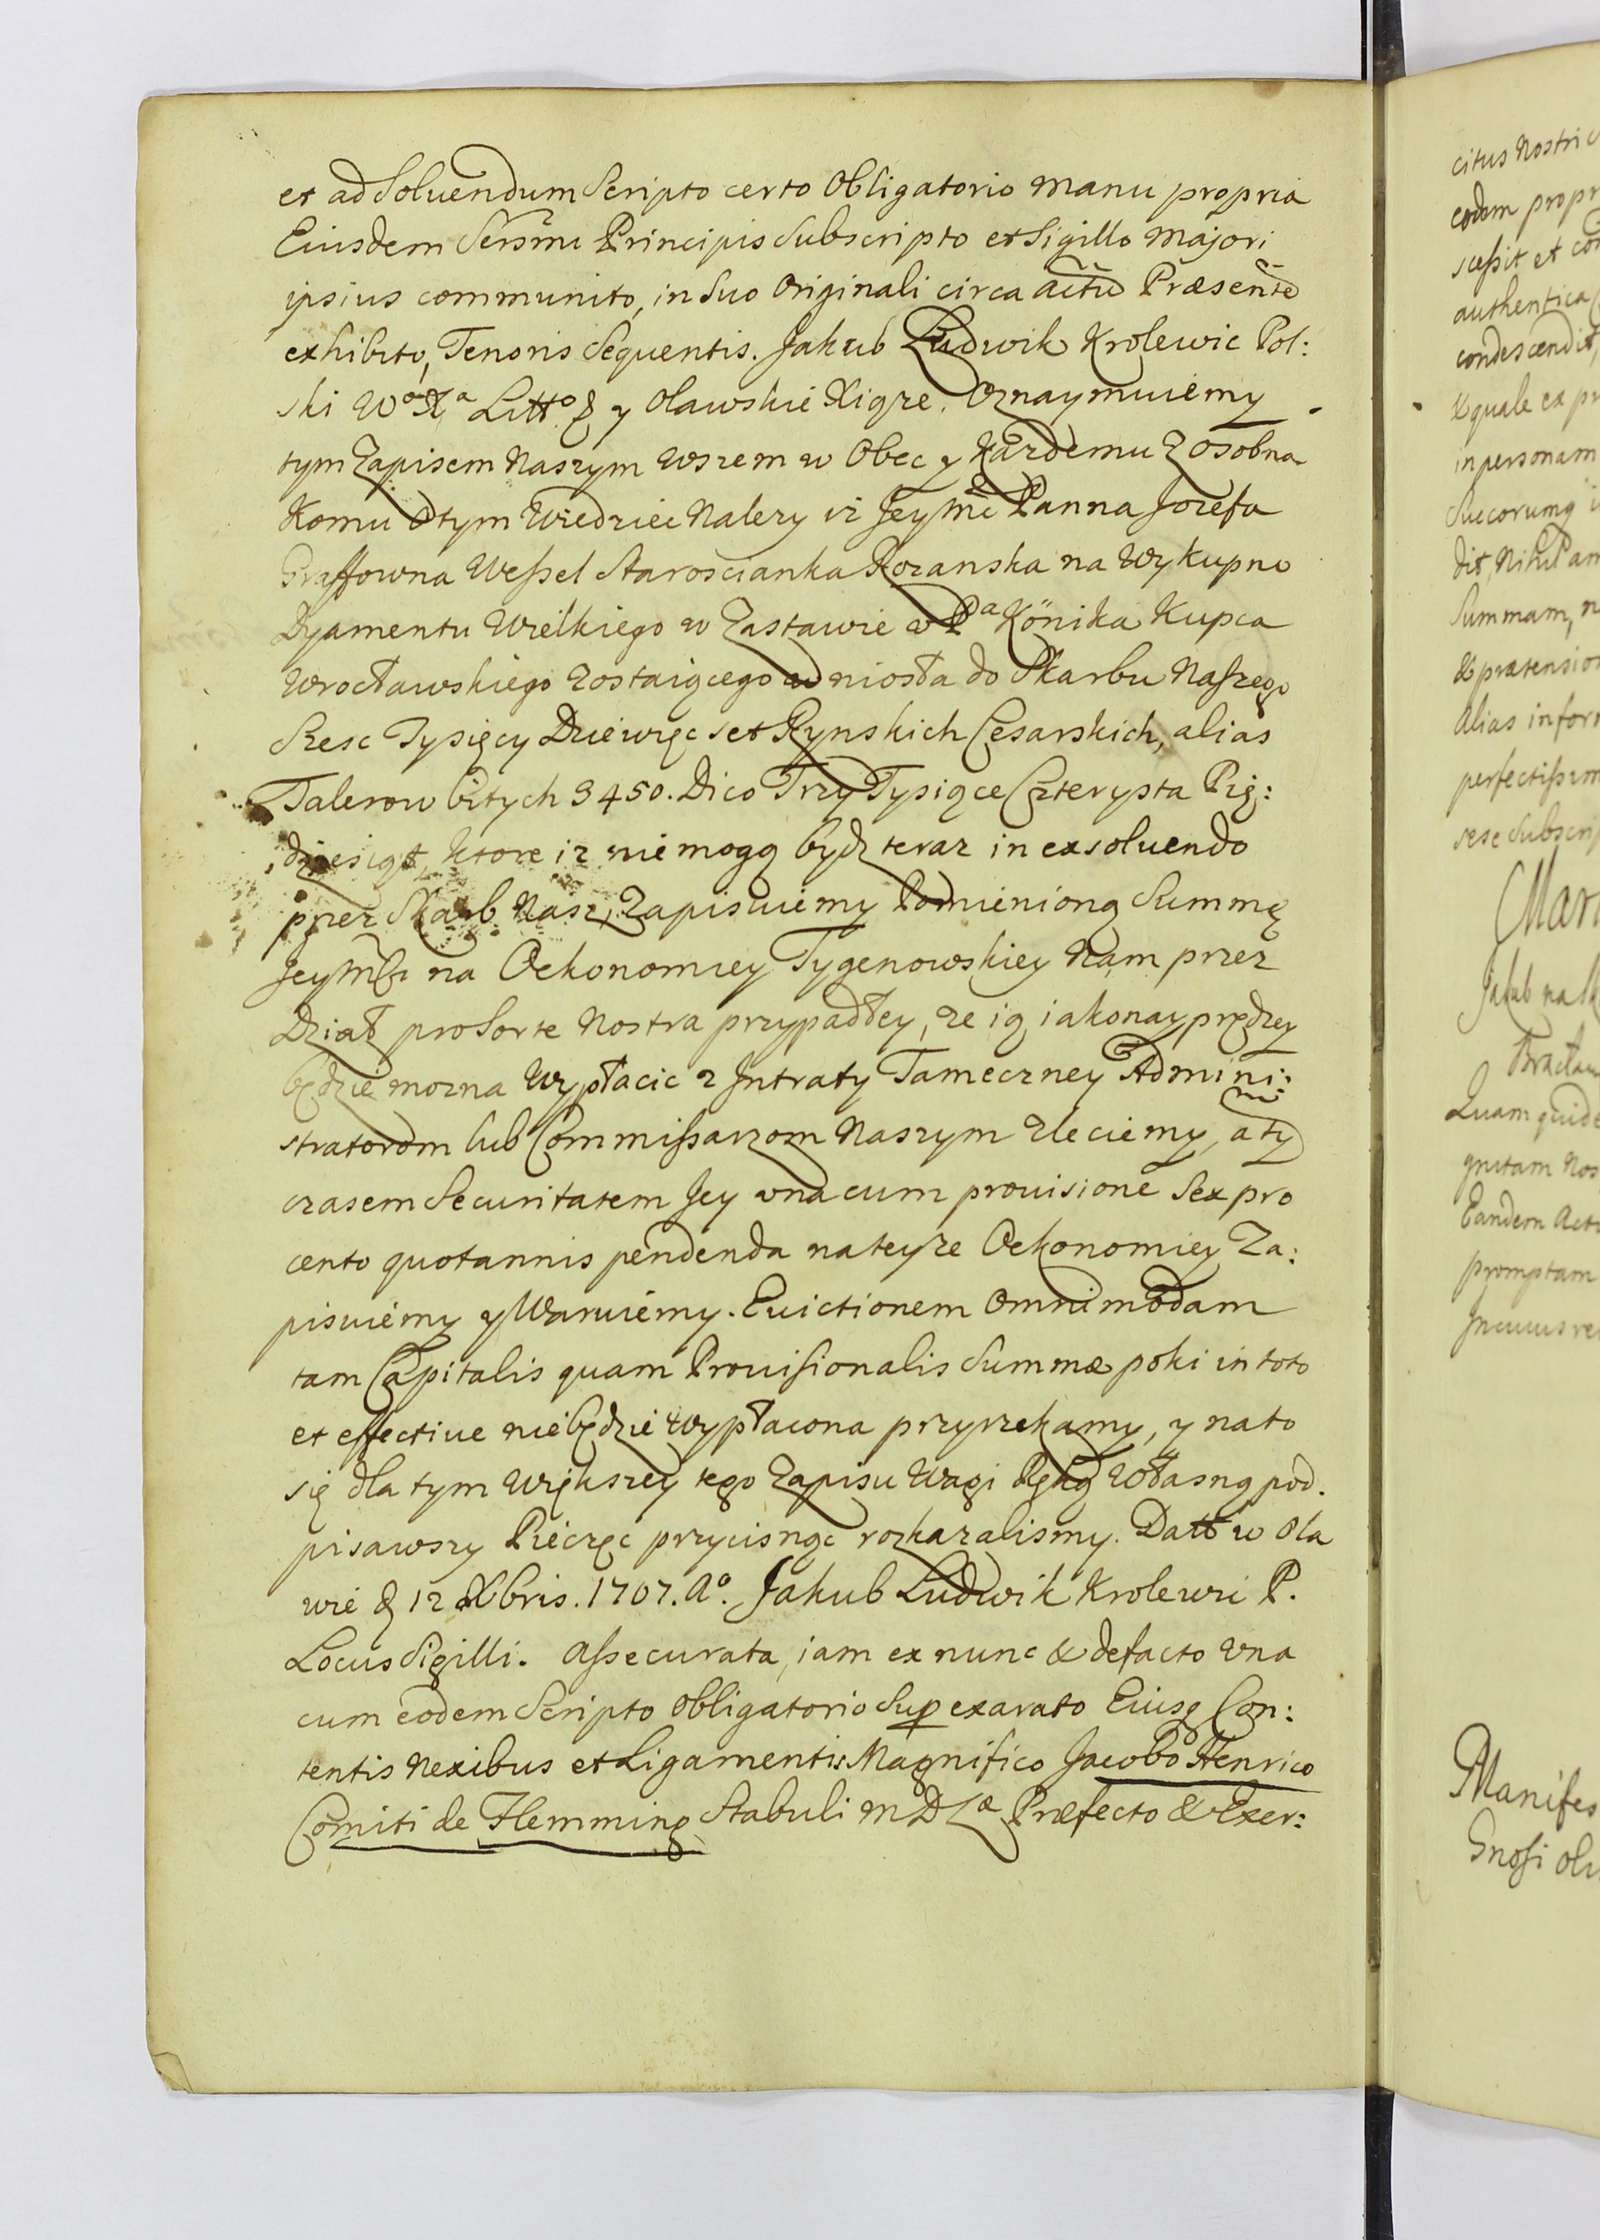 et ad Soluendum Scripto certo Obligatorio manu propria
Eiusdem Sersmi Principis Subscripto et Sigillo majori
ipsius communito, in Suo Originali circa actu Præsente
exhibito, Tenoris Sequentis. Jakub Ludwik Krolewic Pol:
ski Wo Xa Litto & y Olawskie Xigze. Oznaymuiemy
tym Zapisem Naszym wszem w Obec y Kazdemu Zosobna
Komu Otym Wiedziec Nalezy iz Jeymc Panna Jozefa
Graffowna Wessel Staroscianka Rozanska na Wykupno
Dyamentu Wielkiego w Zastawie v Pa Könika Kupca
Wrocławskiego Zostaiącego wniosła do Skarbu Naszego
Szesc Tysięcy Dziewięc set Rynskich Cesarskich, alias
Talerow bitych 3450. Dico Trzy Tysiące Czterysta Pię:
dziesiąt, ktore iz nie mogą bydz teraz in exsoluendo
przez Skarb Nasz, Zapisuiemy Pomienioną Summę
Jeymsci na Oekonomiey Tygenowskiey Nam przez
Dział pro Sorte Nostra przypadłey, ze ią iakonayprędzey
będzie mozna Wypłacic z Jntraty Tameczney Admini:
stratorom lub Commissarzom Naszym zleciemy, a tym
czasem Securitatem Jey vna cum prouisione Sex pro
cento quotannis pendenda nateyze Oekonomiey Za:
pisuiemy y Waruiemy. Euictionem Omnimodam
tam Capitalis quam Prouisionalis Summæ poki in toto
et effectiue niebędzie wypłacona przyrzekamy, y nato
się dla tym większey tego Zapisu Wagi Ręką Własną pod.
pisawszy Pieczęc przycisnąc rozkazalismy. Datt w Ola
wie & 12 Xbris. 1707. Ao. Jakub Ludwik Krolewic P.
Locus Sigilli. Assecurata, iam ex nunc & defacto vna
cum eodem Scripto Obligatorio Sup exarato Eiusq Con:
tentis Nexibus et Ligamentis Magnifico Jacobo Henrico
Comiti de Flemming Stabuli M D Læ Præfecto & Exer:
citus Nostri
eodem propr
scessit et con
authentica
condescendit,
& quale ex pr
in personam
Suecorumq i
dit, Nihil am
Summam, n
& prætension
Alias infor
perfectissim
sese Subscrip
Mar
Jakub na Sk
Bracław
Quam quide
gnitam Nos
Eandem Act
promptam
Jn cuius re
Manifes
Gnosi Ol